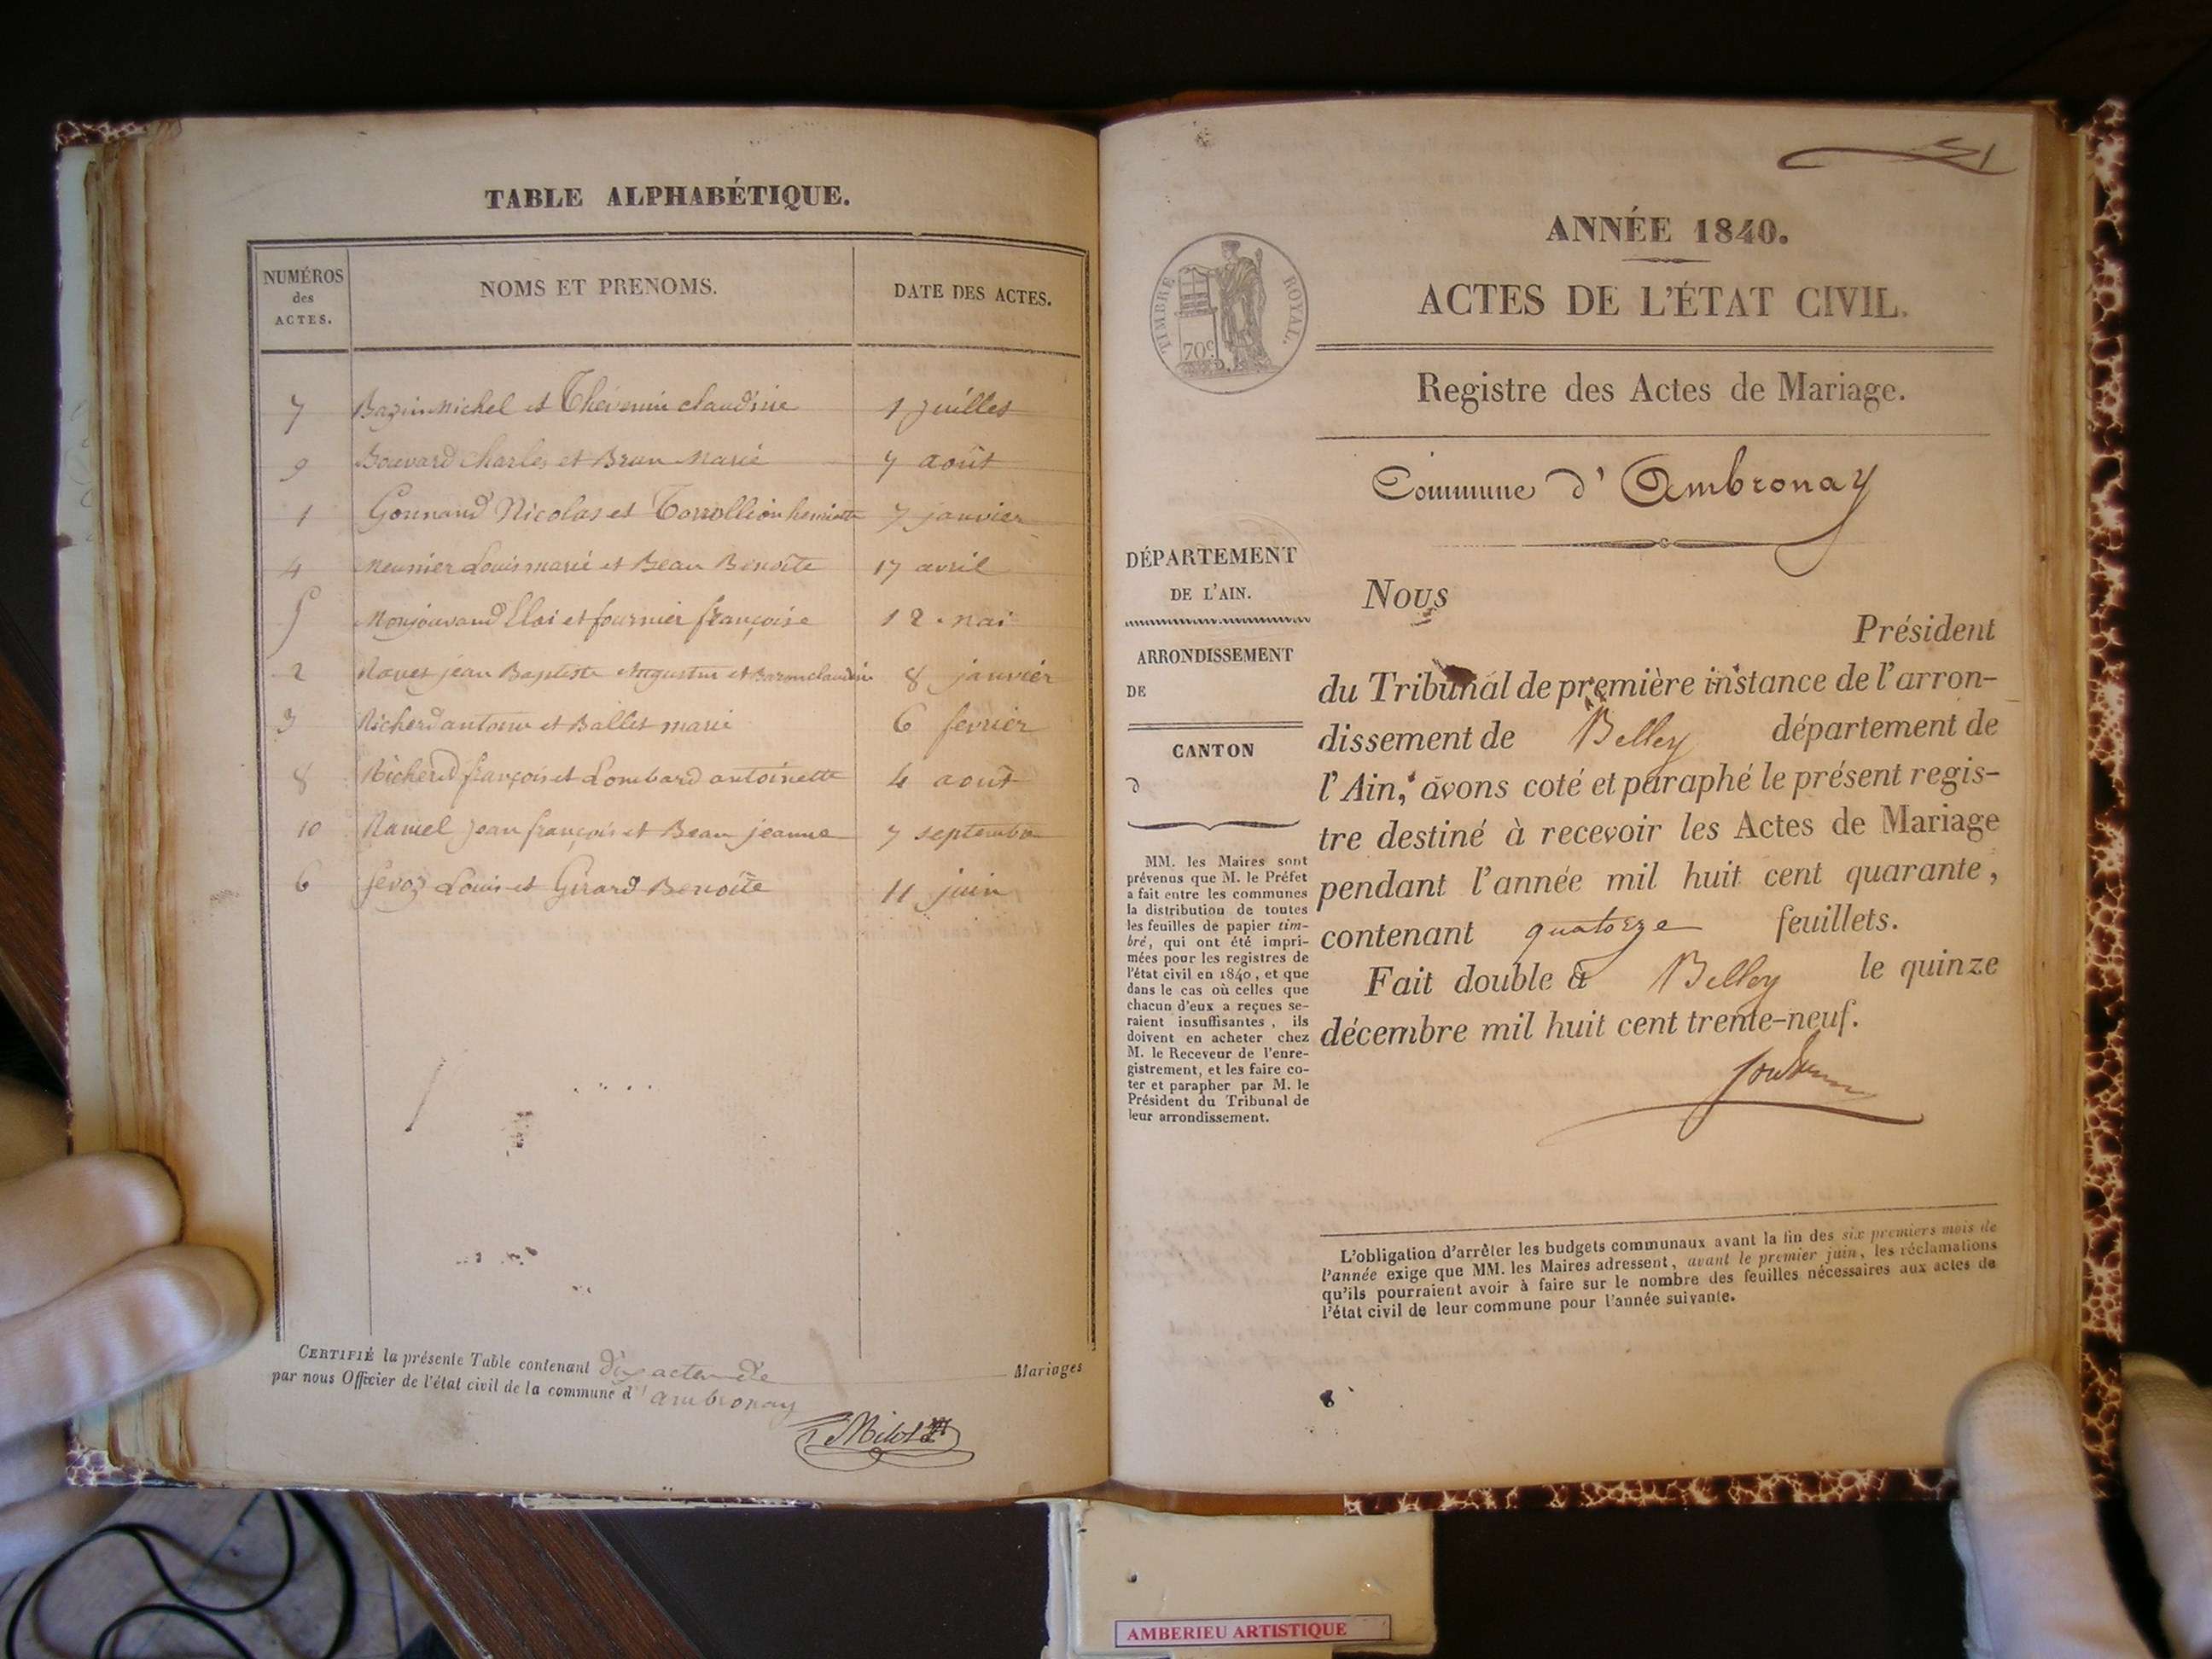 TABLE ALPHABÉTIQUE.
NUMÉROS des ACTES. NOMS ET PRENOMS. DATE DES ACTES.
7 Bazin Michel et Thévenin claudine 1 juillet
9 Bouvard Charles et Brun Marie 7 août
1 Gonnand Nicolas et henriette 7 janvier
4 Meunier Louis marie et Beau Benoîte 17 avril
5 Monjouvand Eloi et fournier françoise 12 mai
2 jean Baptiste et 8 janvier
3 Richerd antoine et Ballet marie 6 fevrier
8 Richerd françois et Lombard antoinette 4 août
10 Ramel Jean françois et Beau jeanne 7 septembre
6 Sevoz Louis et Girard Benoîte 11 juin
CERTIFIÉ la présente Table contenant dix actes de Mariages
par nous Officier de l'état civil de la commune d'ambronay
51
ANNÉE 1840.
ACTES DE L'ÉTAT CIVIL.
TIMBRE ROYAL.
70c
Registre des Actes de Mariage.
Commune d'Ambronay
DÉPARTEMENT
DE L'AIN.
ARRONDISSEMENT
DE
CANTON
d
MM. les Maires sont
prévenus que M. le Préfet
a fait entre les communes
la distribution de toutes
les feuilles de papier tim-
bré, qui ont été impri-
mées pour les registres de
l'état civil en 1840, et que
dans le cas où celles que
chacun d'eux a reçues se-
raient insuffisantes, ils
doivent en acheter chez
M. le Receveur de l'enre-
gistrement, et les faire co-
ter et parapher par M. le
Président du Tribunal de
leur arrondissement.
Nous
Président
du Tribunal de première instance de l'arron-
dissement de Belley département de
l'Ain, avons coté et paraphé le présent regis-
tre destiné à recevoir les Actes de Mariage
pendant l'année mil huit cent quarante,
contenant quatorze feuillets.
Fait double à Belley le quinze
décembre mil huit cent trente-neuf.
L'obligation d'arrêter les budgets communaux avant la fin des six premiers mois de
l'année exige que MM. les Maires adressent, avant le premier juin, les réclamations
qu'ils pourraient avoir à faire sur le nombre des feuilles nécessaires aux actes de
l'état civil de leur commune pour l'année suivante.
AMBERIEU ARTISTIQUE